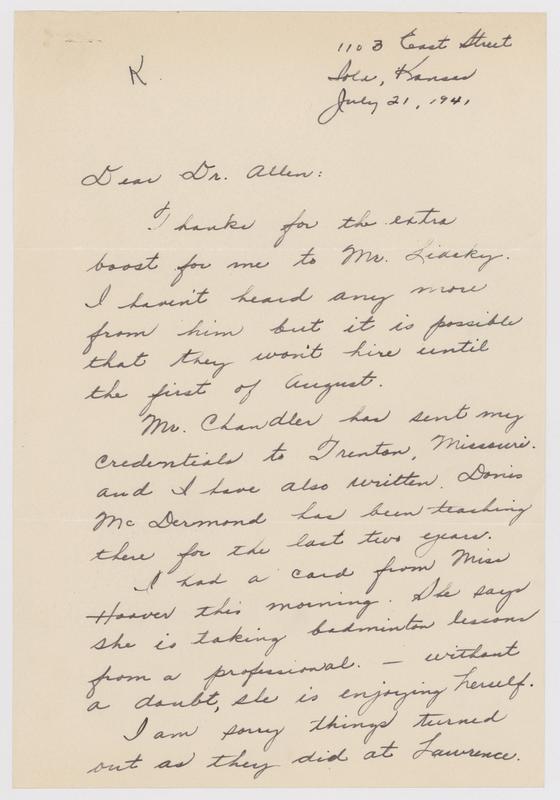 1103 East Street
K.
Iola, Kansas
July 21, 1941
Dear Dr. Allen:
Thanks for the extra
boost for me to Mr. Lidsky.
I haven't heard any more
from him but it is possible
that they won't hire until
the first of August.
Mr. Chandler has sent my
credentials to Trenton, Missouri.
and I have also written. Donis
Mc Dermond has been teaching
there for the last two years.
I had a card from Miss
Hoover this morning. She says
she is taking badminton lessons
from a professional. — without
a doubt, she is enjoying herself.
I am sorry things turned
out as they did at Lawrence.